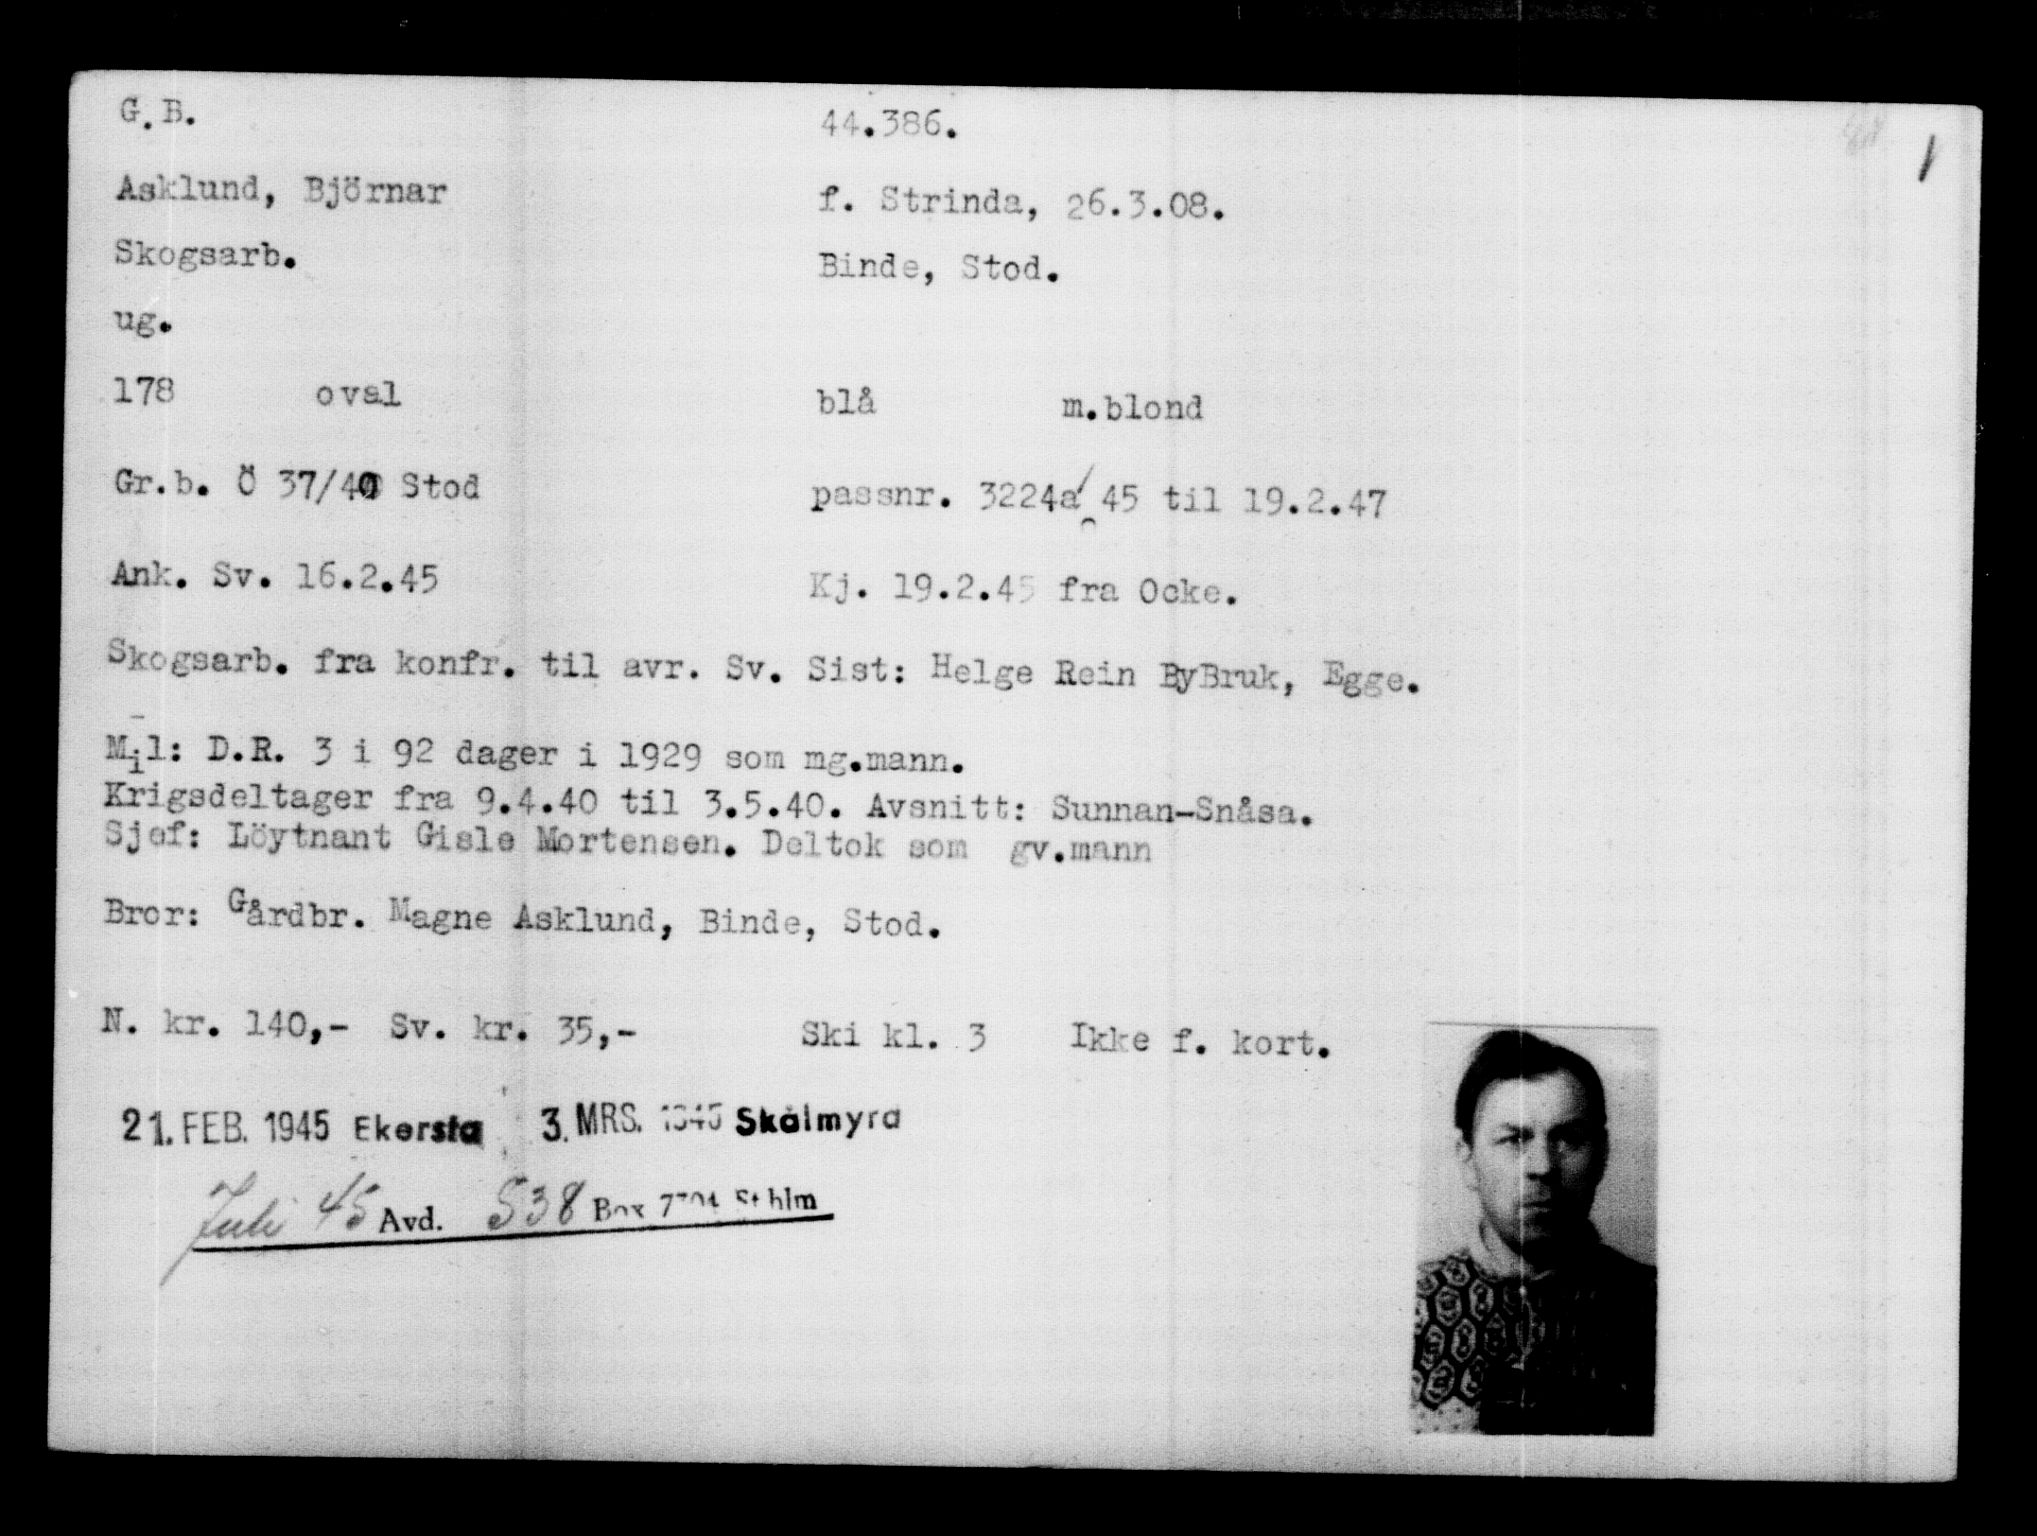 G.B. 44.386. 1
Asklund, Björnar f. Strinda, 26.3.08.
Skogsarb. Binde, Stod.
ug.
178 oval blå m.blond
Gr.b. Ö 37/40 Stod passnr. 3224a/45 til 19.2.47
Ank. Sv. 16.2.45 Kj. 19.2.45 fra Ocke.
Skogsarb. fra konfr. til avr. Sv. Sist: Helge Rein ByBruk, Egge.
Mil: D.R. 3 i 92 dager i 1929 som mg.mann.
Krigsdeltager fra 9.4.40 til 3.5.40. Avsnitt: Sunnan-Snåsa.
Sjef: Löytnant Gisle Mortensen. Deltok som gv.mann
Bror: Gårdbr. Magne Asklund, Binde, Stod.
N. kr. 140,- Sv. kr. 35,- Ski kl. 3 Ikke f. kort.
21. FEB. 1945 Ekersta 3. MRS. 1945 Skålmyra
Juli 45 Avd. 538 Box Sthlm